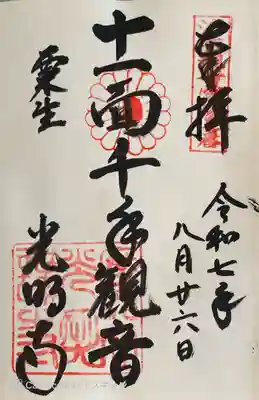 奉拝
令和七年
八月廿六日
十一面千手観音
粟生
光明寺